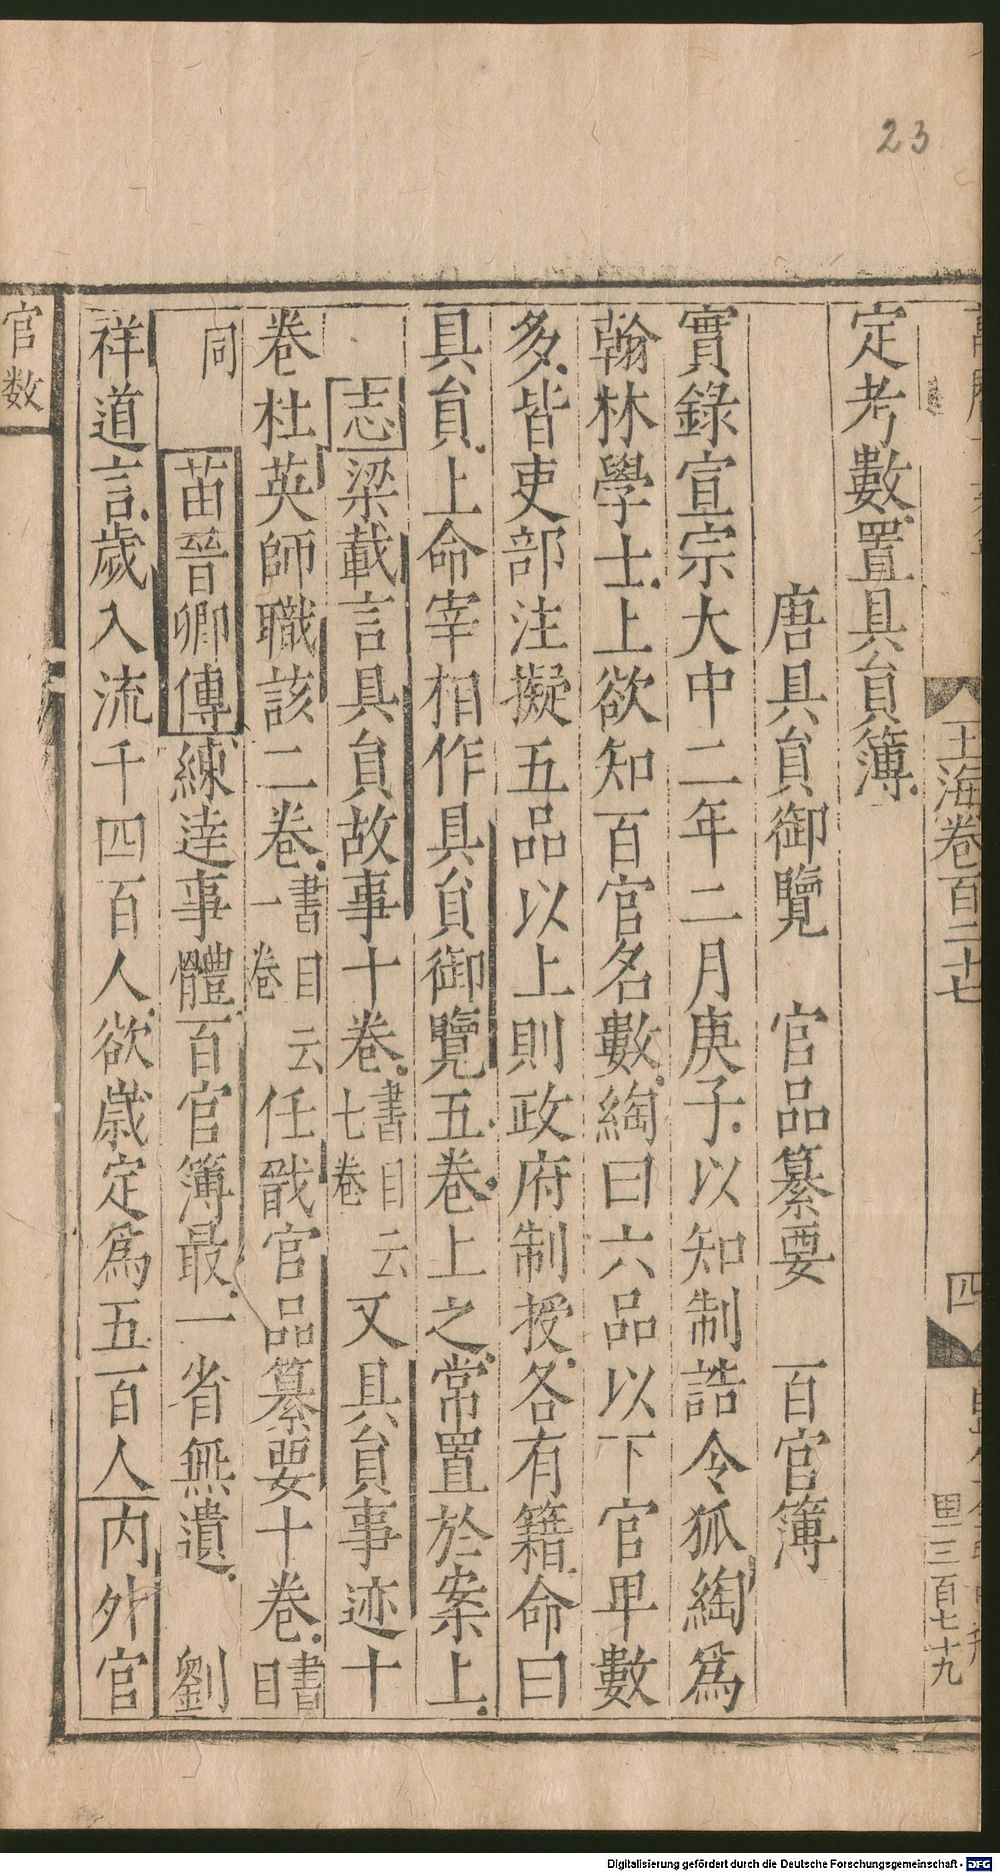 23
玉海卷百二十七
四
三百七十九
定考數置具貟簿
唐具貟御覽 官品纂要 百官簿
實錄宣宗大中二年二月庚子以知制誥令狐綯爲
翰林學士上欲知百官名數綯曰六品以下官卑數
多皆吏部注擬五品以上則政府制授各有籍命曰
具貟上命宰相作具貟御覽五卷上之常置於案上
志梁載言具貟故事十卷書目云七卷又具貟事迹十
卷杜英師職該二卷書目云一卷任戩官品纂要十卷書目
同 苗晉卿傳練達事體百官簿最一省無遺 劉
祥道言歲入流千四百人欲歲定爲五百人內外官
官数
Digitalisierung gefördert durch die Deutsche Forschungsgemeinschaft - DFG